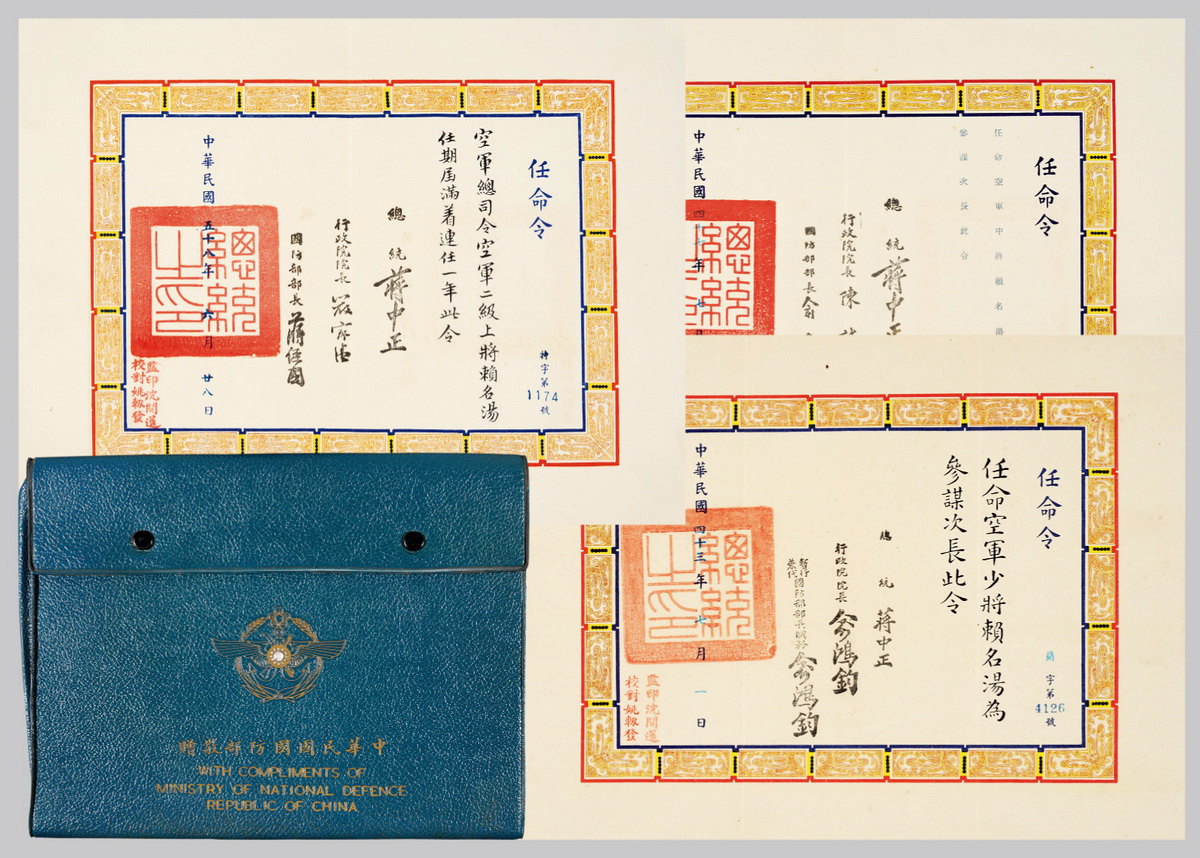 任命令
空軍總司令空軍二級上將賴名湯
任期屆滿着連任一年此令
特字第1174號
總統 蔣中正
行政院院長 嚴家淦
國防部部長 蔣經國
中華民國五十八年六月廿八日
總統之印
監印沈開運
校對姚叔發
任命令
任命空軍中將賴名湯
參謀次長此令
總統 蔣中正
行政院院長 陳
國防部部長 俞
中華民國四十七年七月
任命令
任命空軍少將賴名湯為
參謀次長此令
字第4126號
總統 蔣中正
行政院院長 俞鴻鈞
暫行兼代國防部部長職務 俞鴻鈞
中華民國四十三年七月一日
總統之印
監印沈開運
校對姚叔發
中華民國國防部敬贈
WITH COMPLIMENTS OF
MINISTRY OF NATIONAL DEFENCE
REPUBLIC OF CHINA